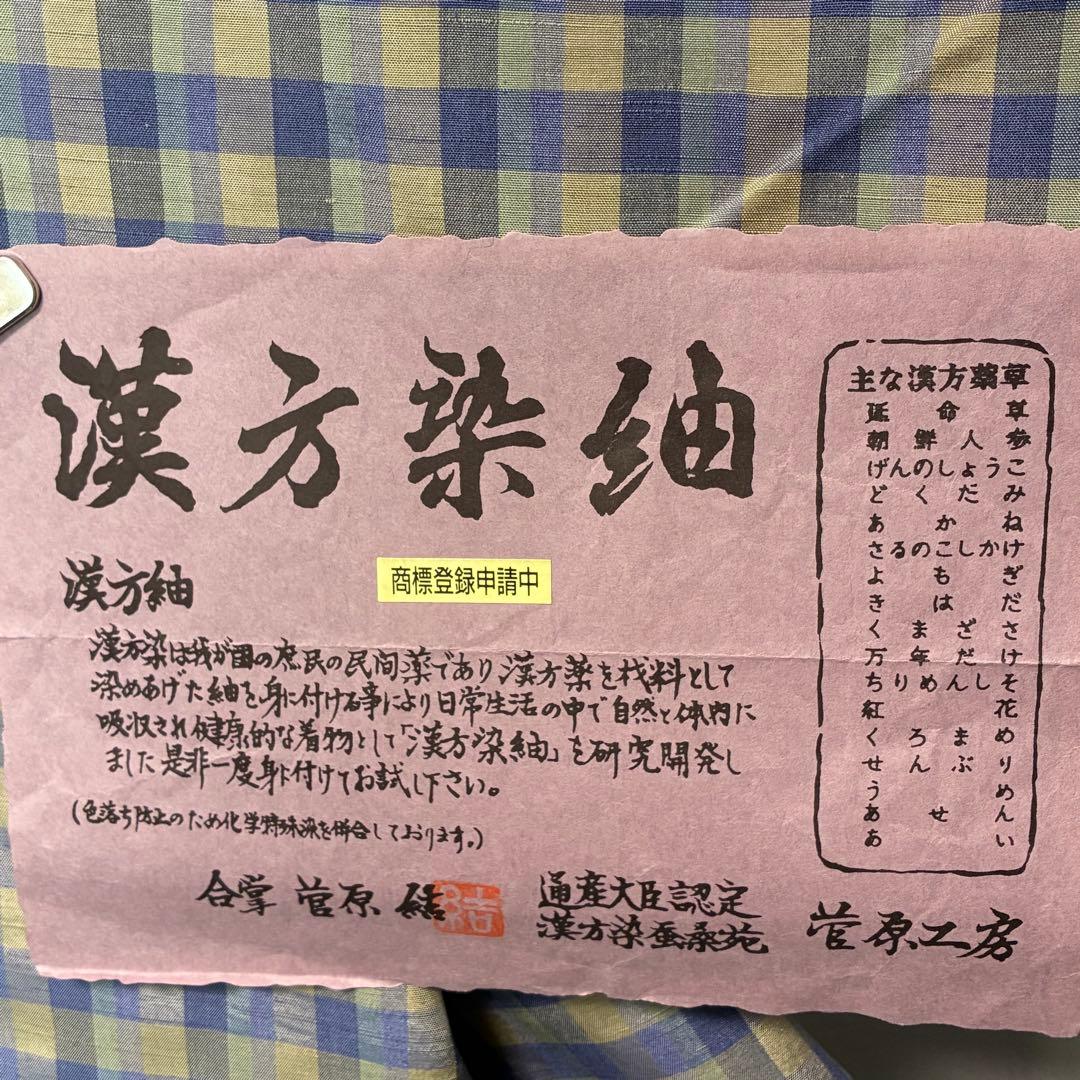 漢方染紬
漢方紬
商標登録申請中
漢方染は我が国の庶民の民間薬であり漢方薬を材料として
染めあげた紬を身に付ける事により日常生活の中で自然と体内に
吸収され健康的な着物として「漢方染紬」を研究開発し
ました是非一度身に付けてお試し下さい。
(色落ち防止のため化学特殊染を併合しております。)
合掌 菅原 結
結
通産大臣認定
漢方染蚕桑苑
菅原工房
主な漢方薬草
延命草
朝鮮人参
げんのしょうこ
どくだみ
あかね
さるのこしかけ
よもぎ
きはだ
くまざさ
万年だけ
ちりめんしそ
紅花
くろまめ
せんぶり
うめ
あせん
あい